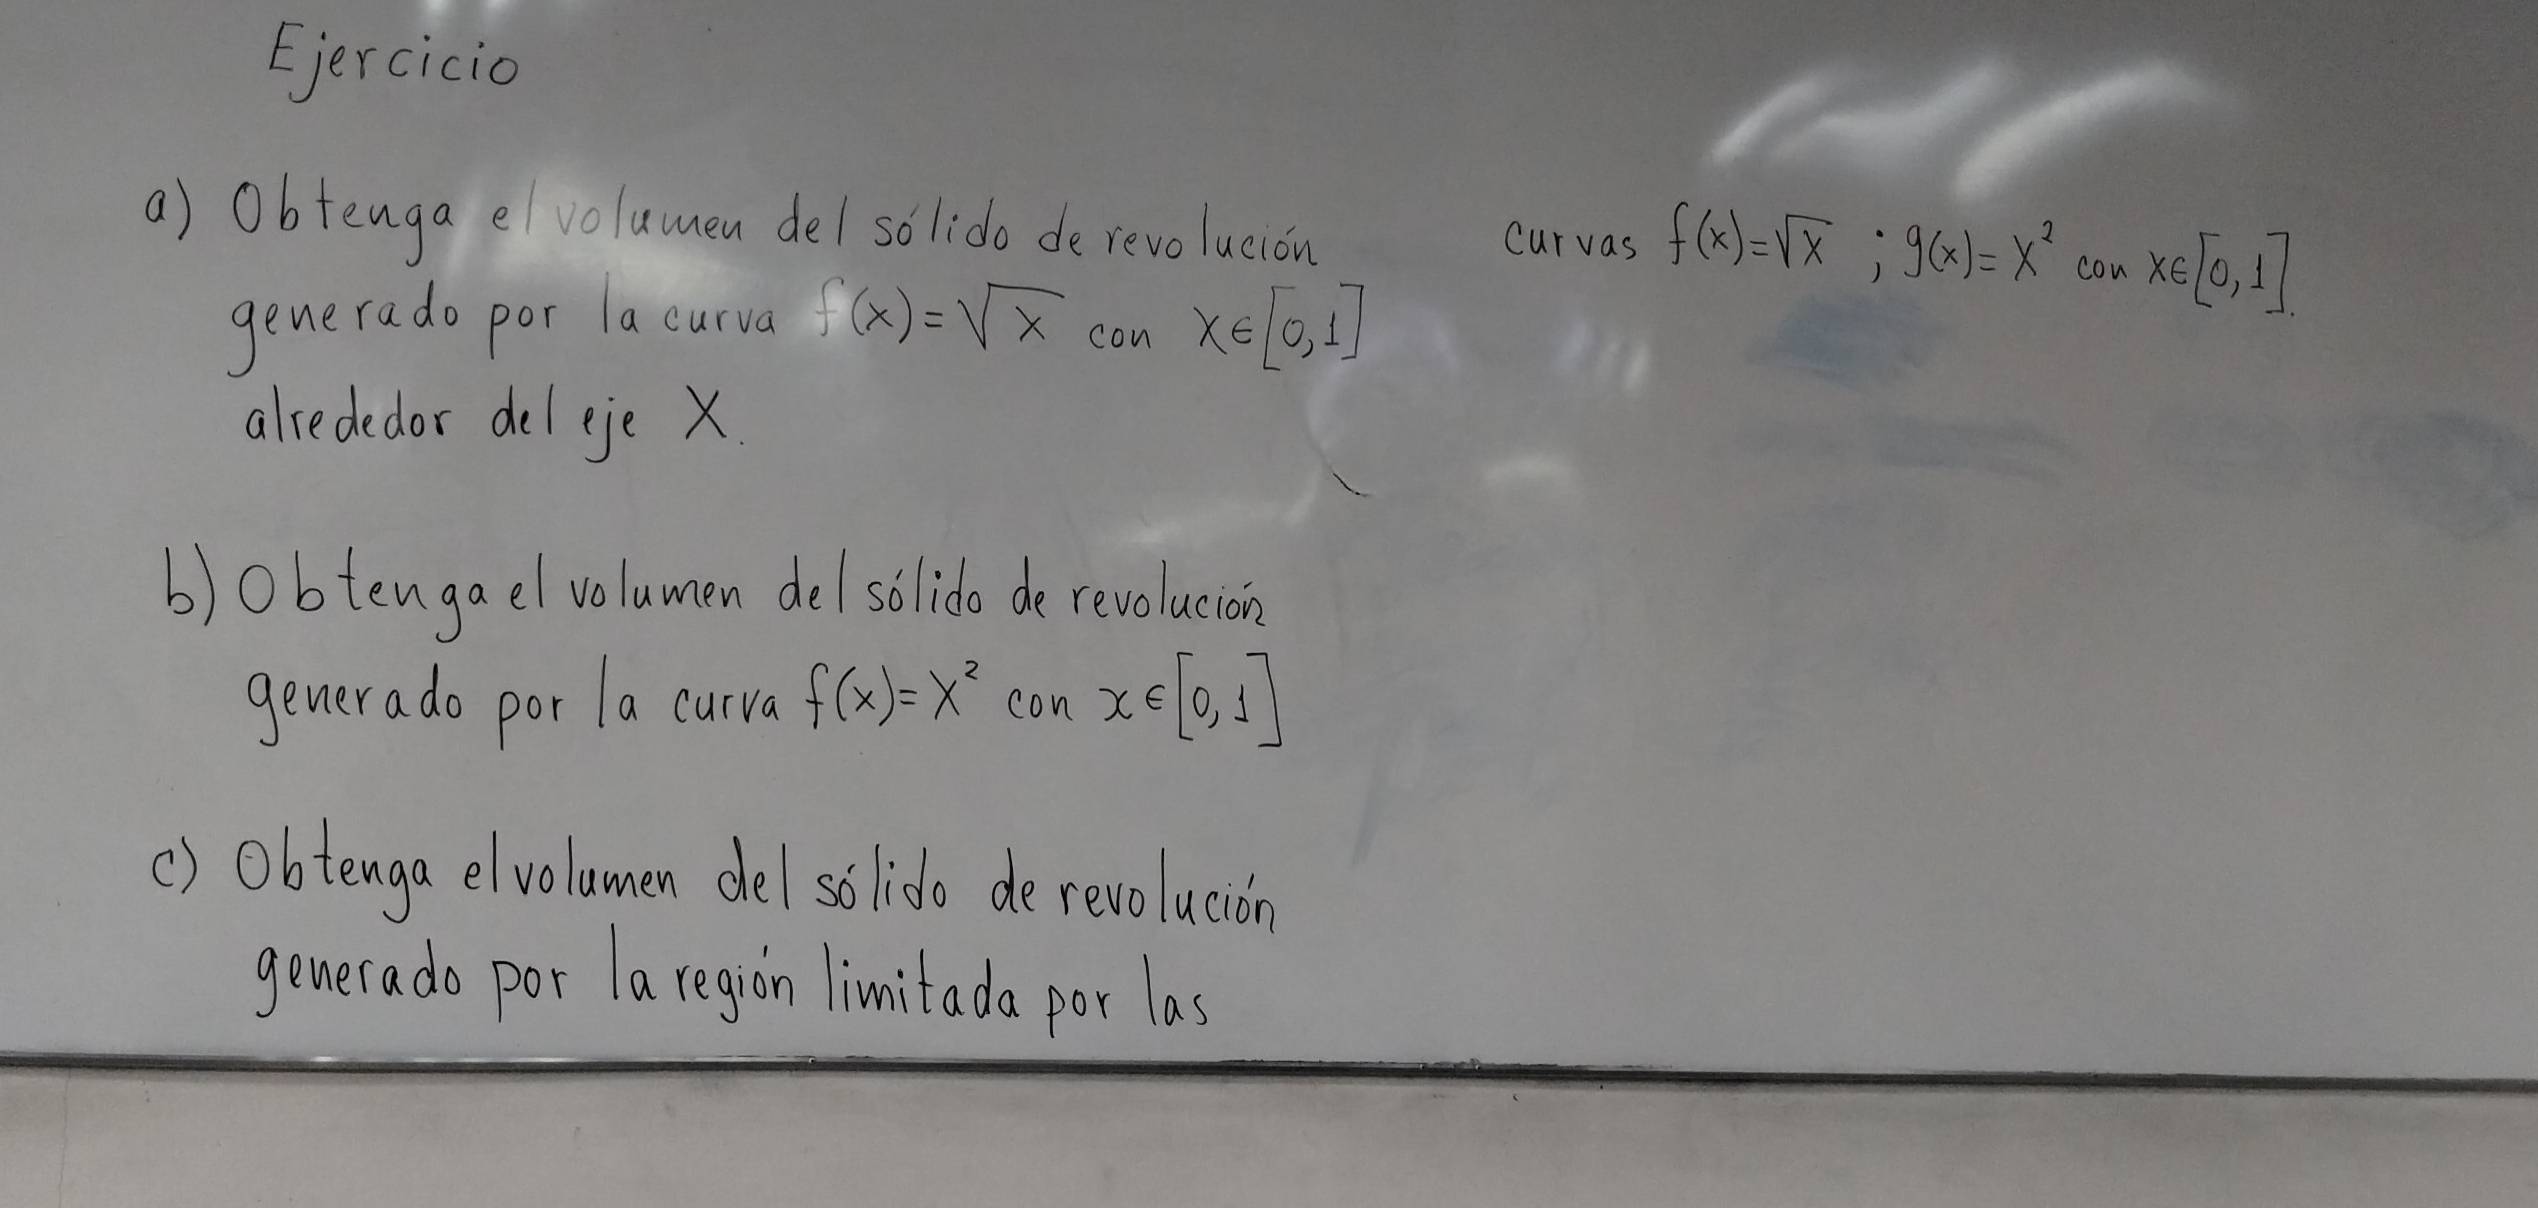 Ejercicio
a) Obtenga el volumen del sólido de revolución
generado por la curva f(x)=√x con x∈[0,1]
alrededor del eje X.
b) Obtenga el volumen del sólido de revolución
generado por la curva f(x)=x² con x∈[0,1]
c) Obtenga el volumen del sólido de revolución
generado por la región limitada por las
curvas f(x)=√x ; g(x)=x² con x∈[0,1].